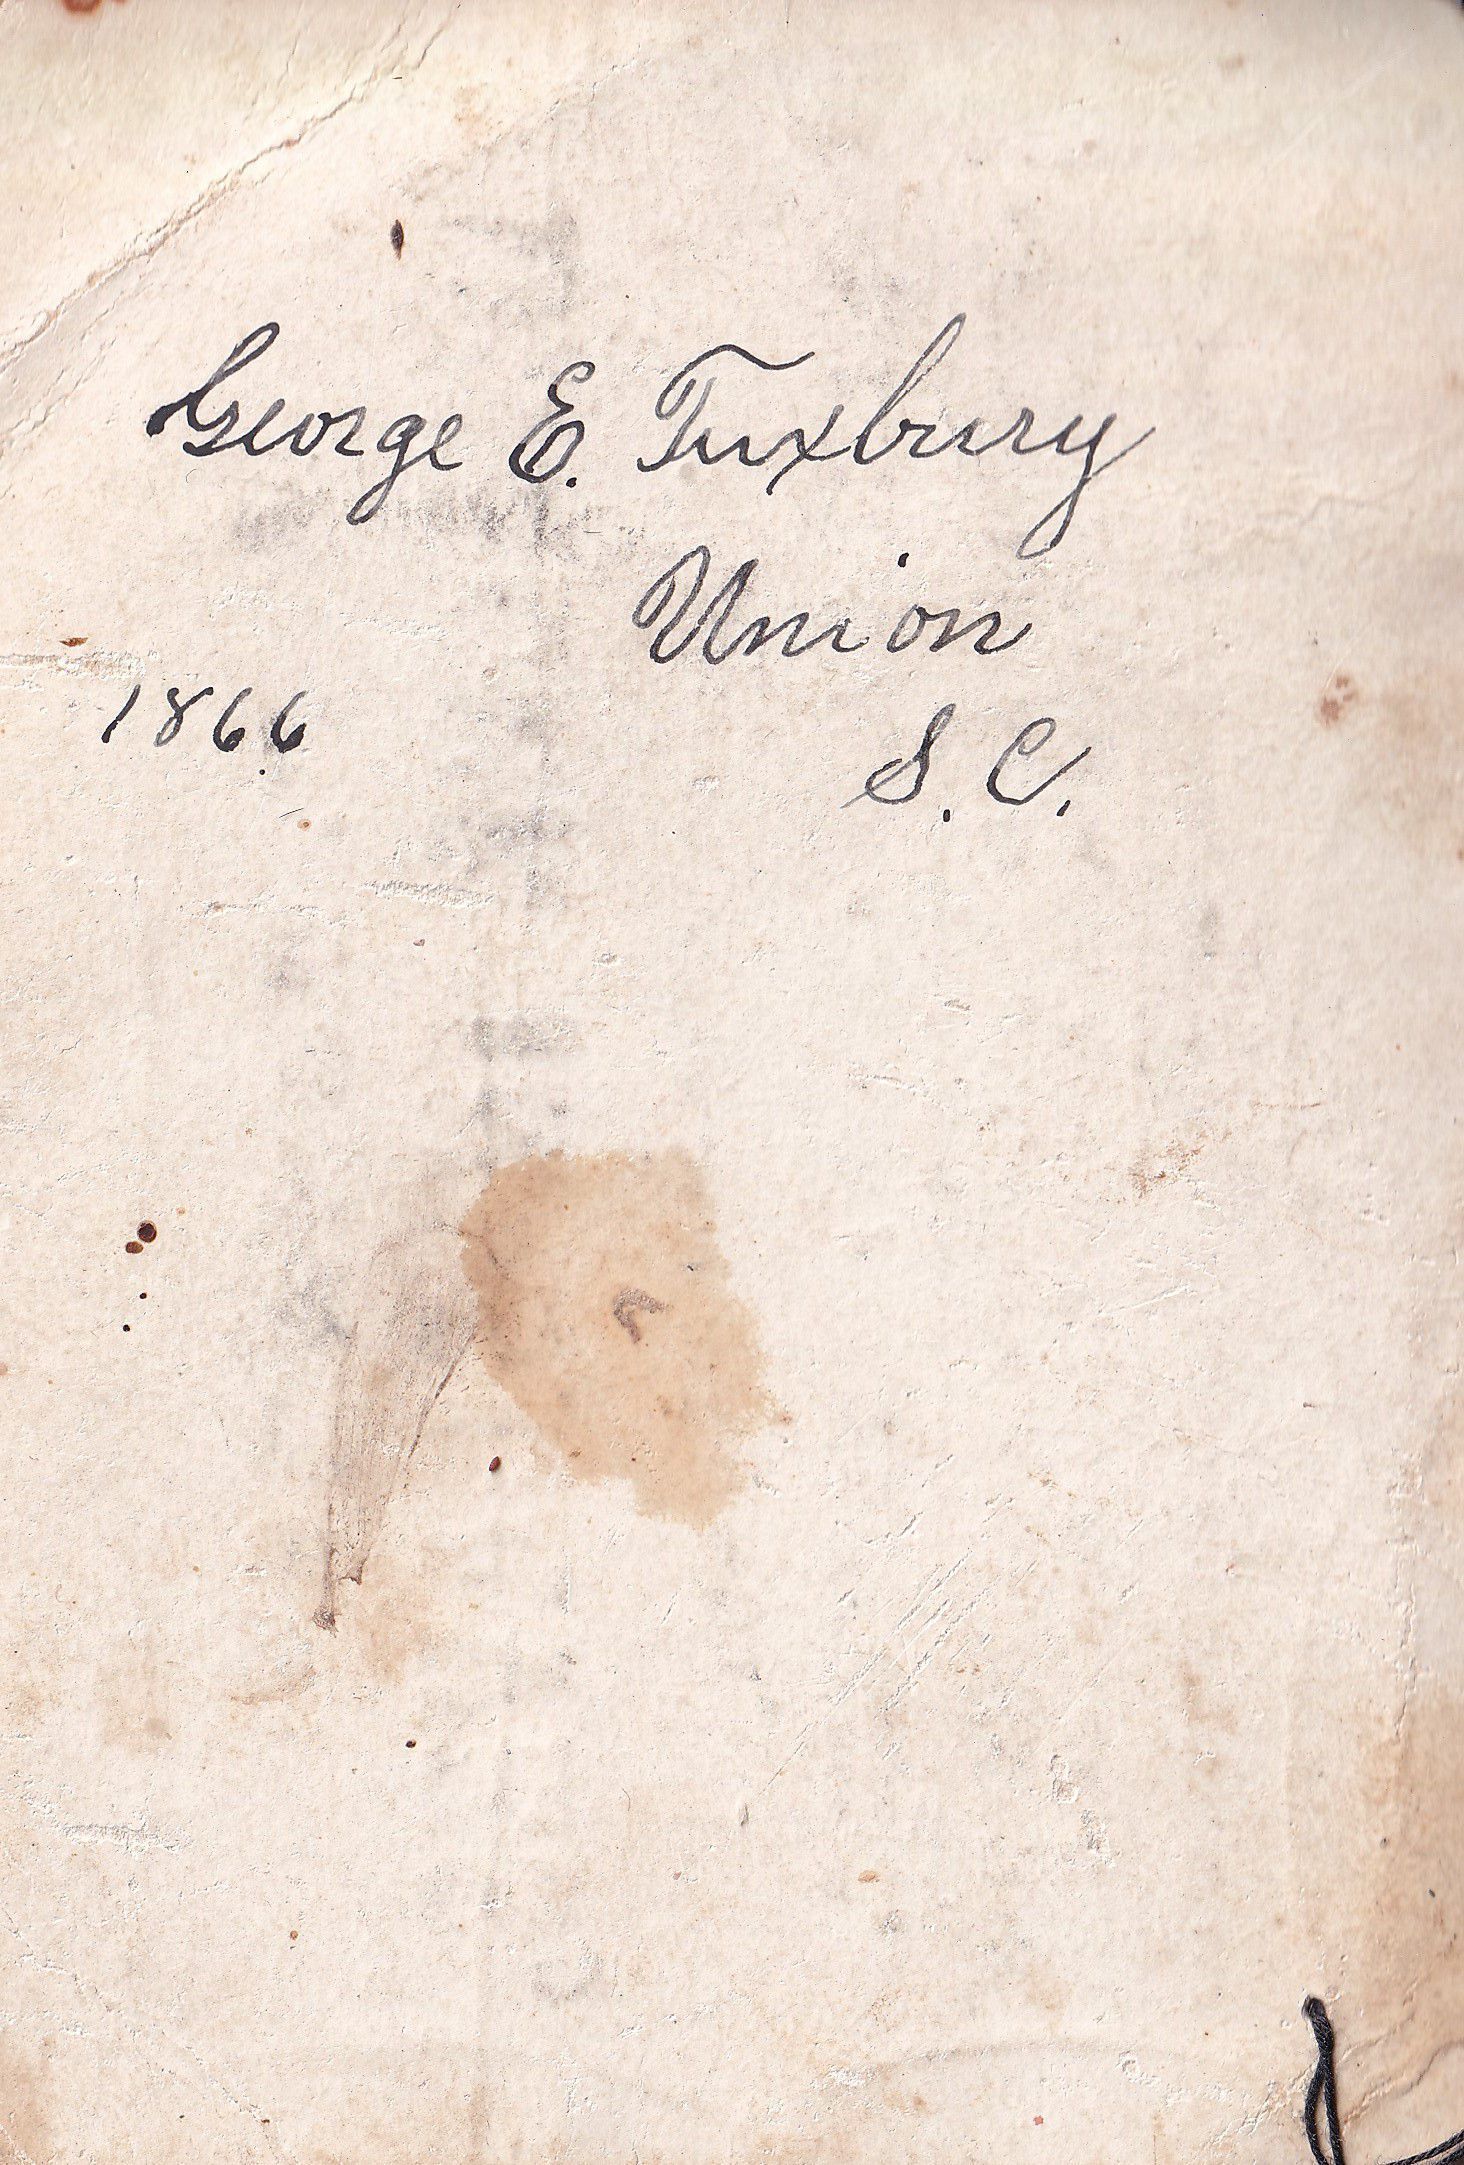 George E. Tuxbury
Union
1866
S. C.